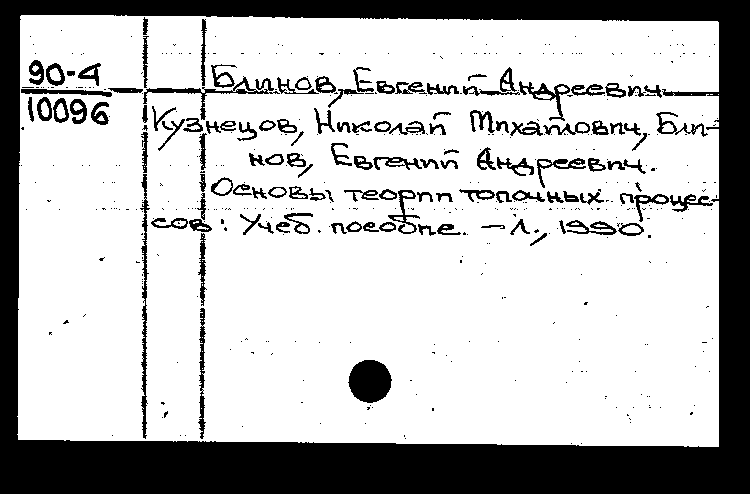 90-4
10096
Блинов, Евгений Андреевич
Кузнецов, Николай Михайлович, Бли-
нов, Евгений Андреевич.
Основы теории топочных процес-
сов: Учеб. пособие. – Л., 1990.